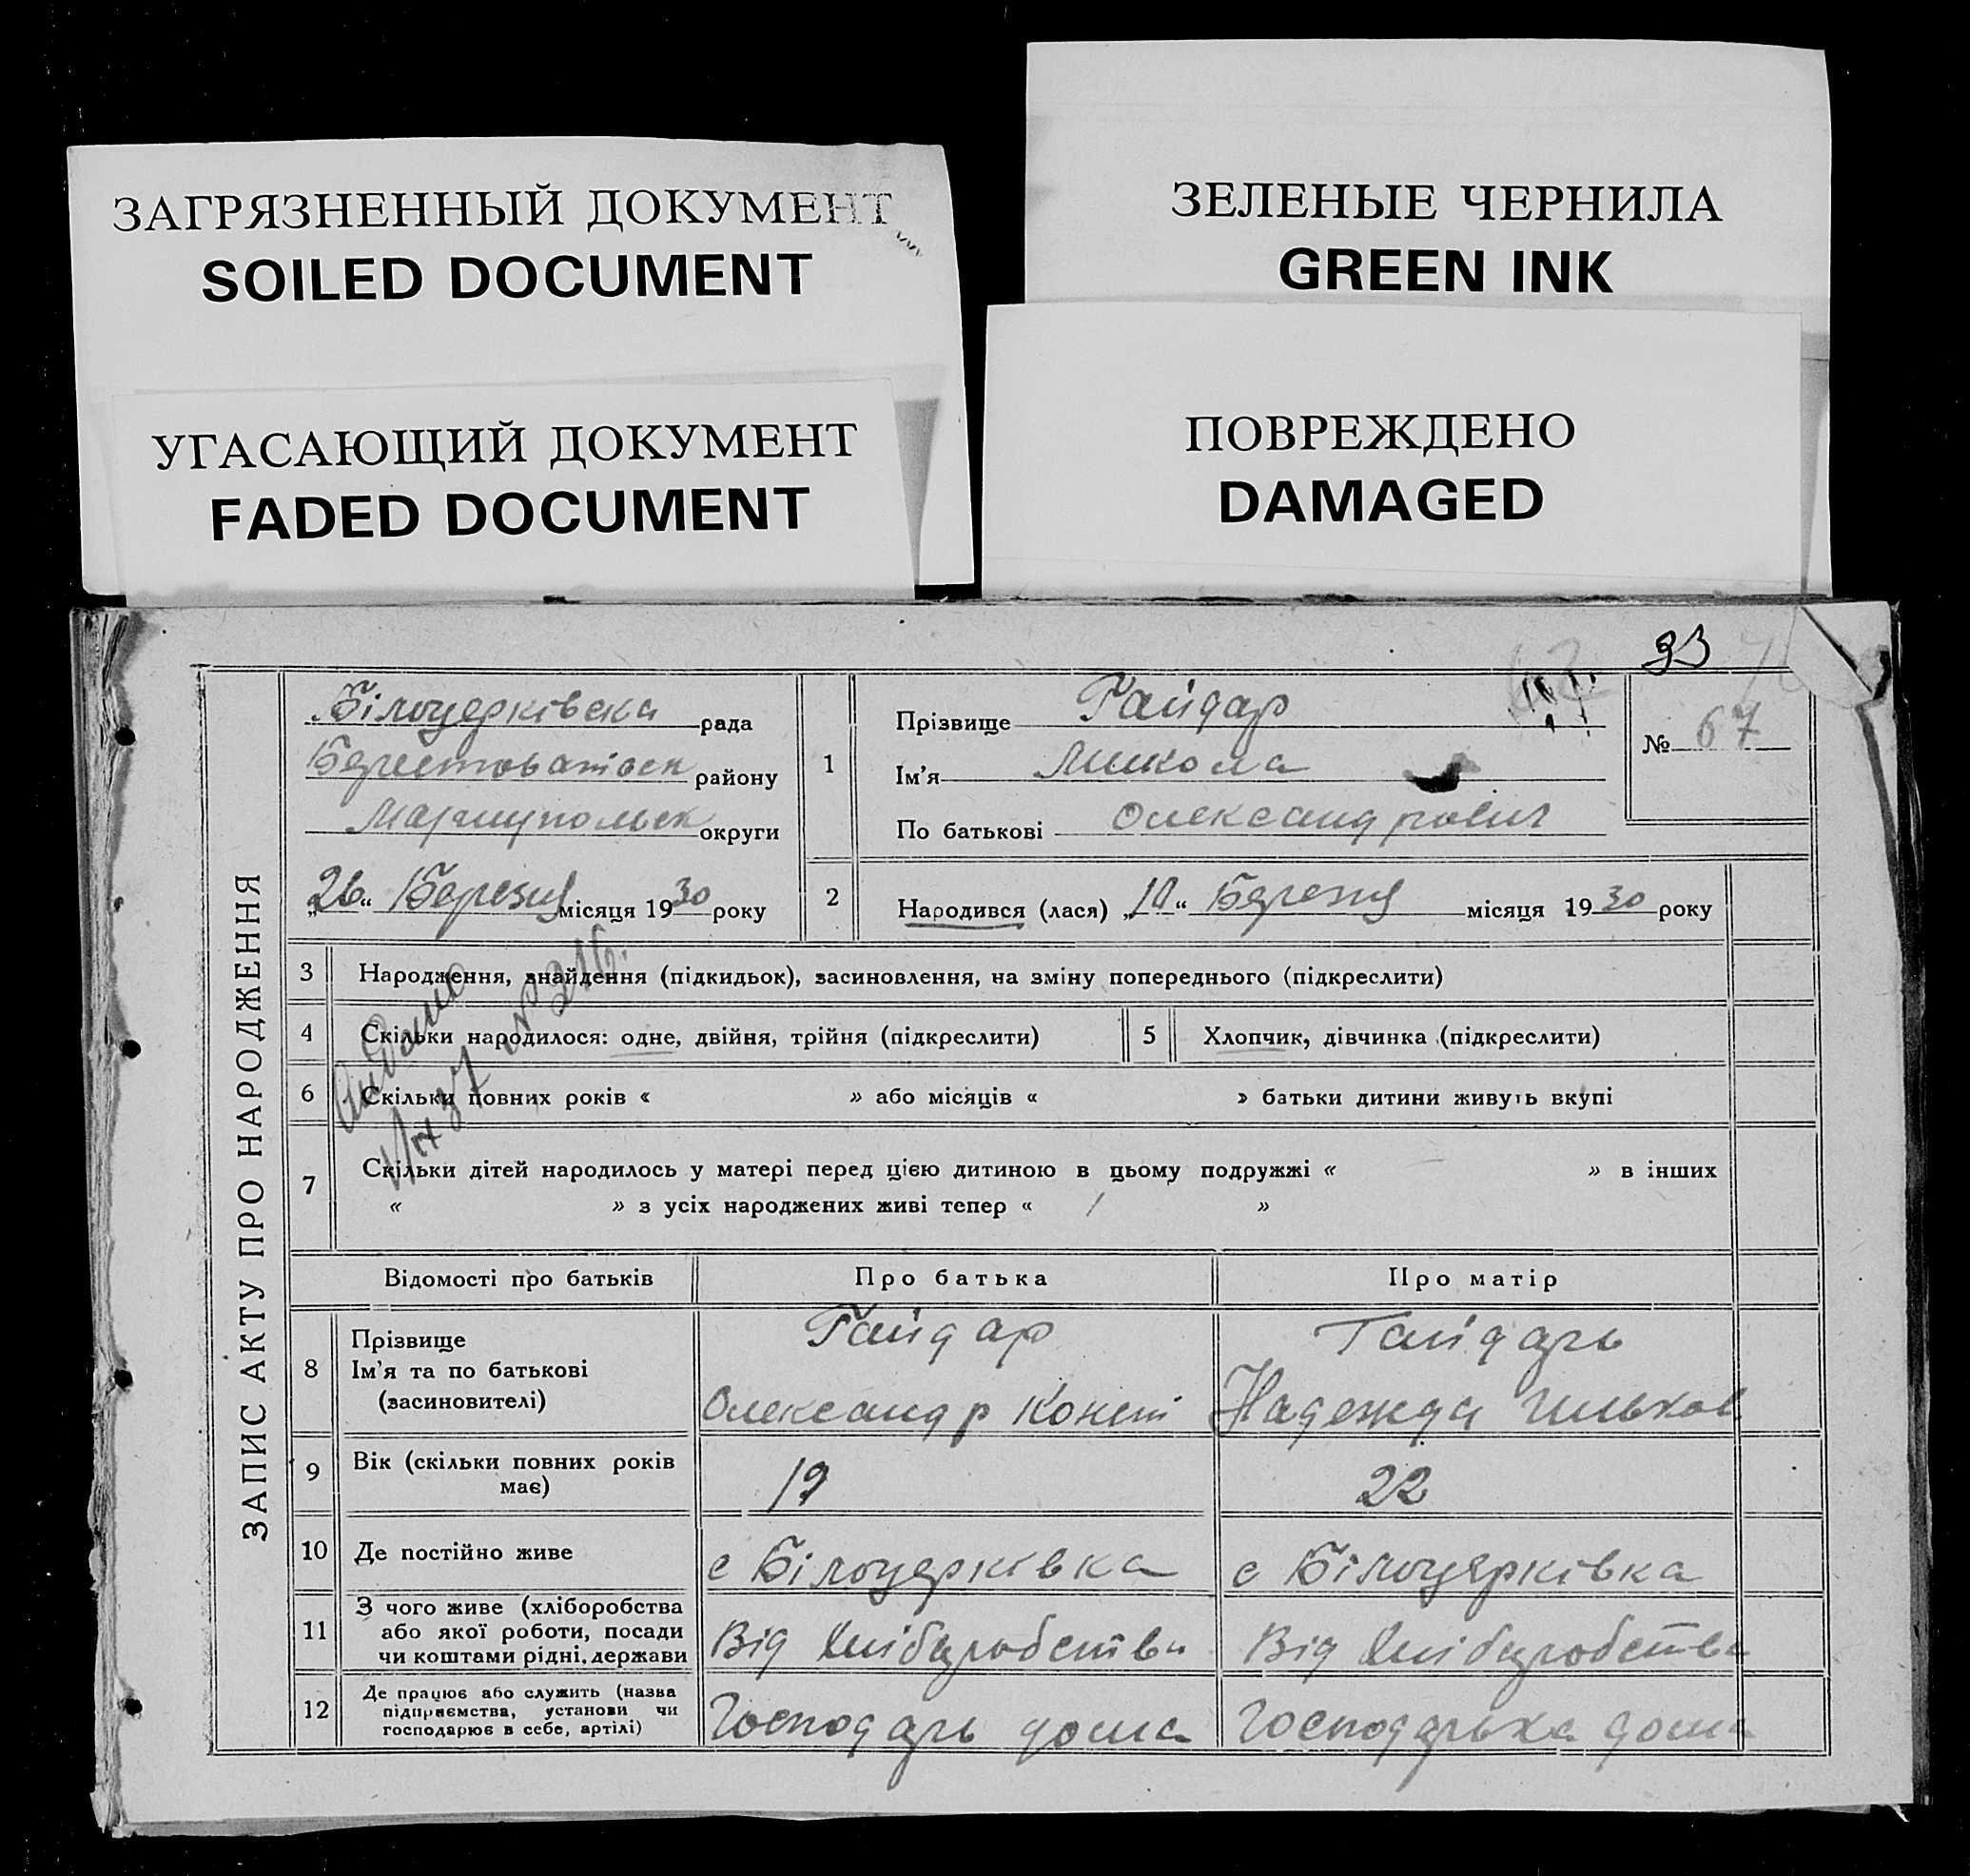 ЗАГРЯЗНЕННЫЙ ДОКУМЕНТ
SOILED DOCUMENT
УГАСАЮЩИЙ ДОКУМЕНТ
FADED DOCUMENT
ЗЕЛЕНЫЕ ЧЕРНИЛА
GREEN INK
ПОВРЕЖДЕНО
DAMAGED
93
ЗАПИС АКТУ ПРО НАРОДЖЕННЯ
Білоцерківська рада
Берестоватівськ району
Маріупольск округи
„26“ Березня місяця 1930 року
1
Прізвище Гайдар
Ім'я Микола
По батькові Олександрович
№ 67
2
Народився (лася) „10“ Березня місяця 1930 року
3 Народження, знайдення (підкидьок), засиновлення, на зміну попереднього (підкреслити)
4 Скільки народилося: одне, двійня, трійня (підкреслити)
5 Хлопчик, дівчинка (підкреслити)
6 Скільки повних років « » або місяців « » батьки дитини живуть вкупі
7 Скільки дітей народилось у матері перед цією дитиною в цьому подружжі « » в інших
« » з усіх народжених живі тепер « 1 »
№ 216.
Відомості про батьків Про батька Про матір
8 Прізвище
Ім'я та по батькові
(засиновителі)
Гайдар
Олександр Конст
Гайдарь
Надежда
9 Вік (скільки повних років
має)
19
22
10 Де постійно живе
с Білоцерківка
с Білоцерківка
11 З чого живе (хліборобства
або якої роботи, посади
чи коштами рідні, держави
Від Хліборобства
Від Хліборобства
12 Де працює або служить (назва
підприємства, установи чи
господарює в себе, артілі)
Господарь дома
Господарька дома